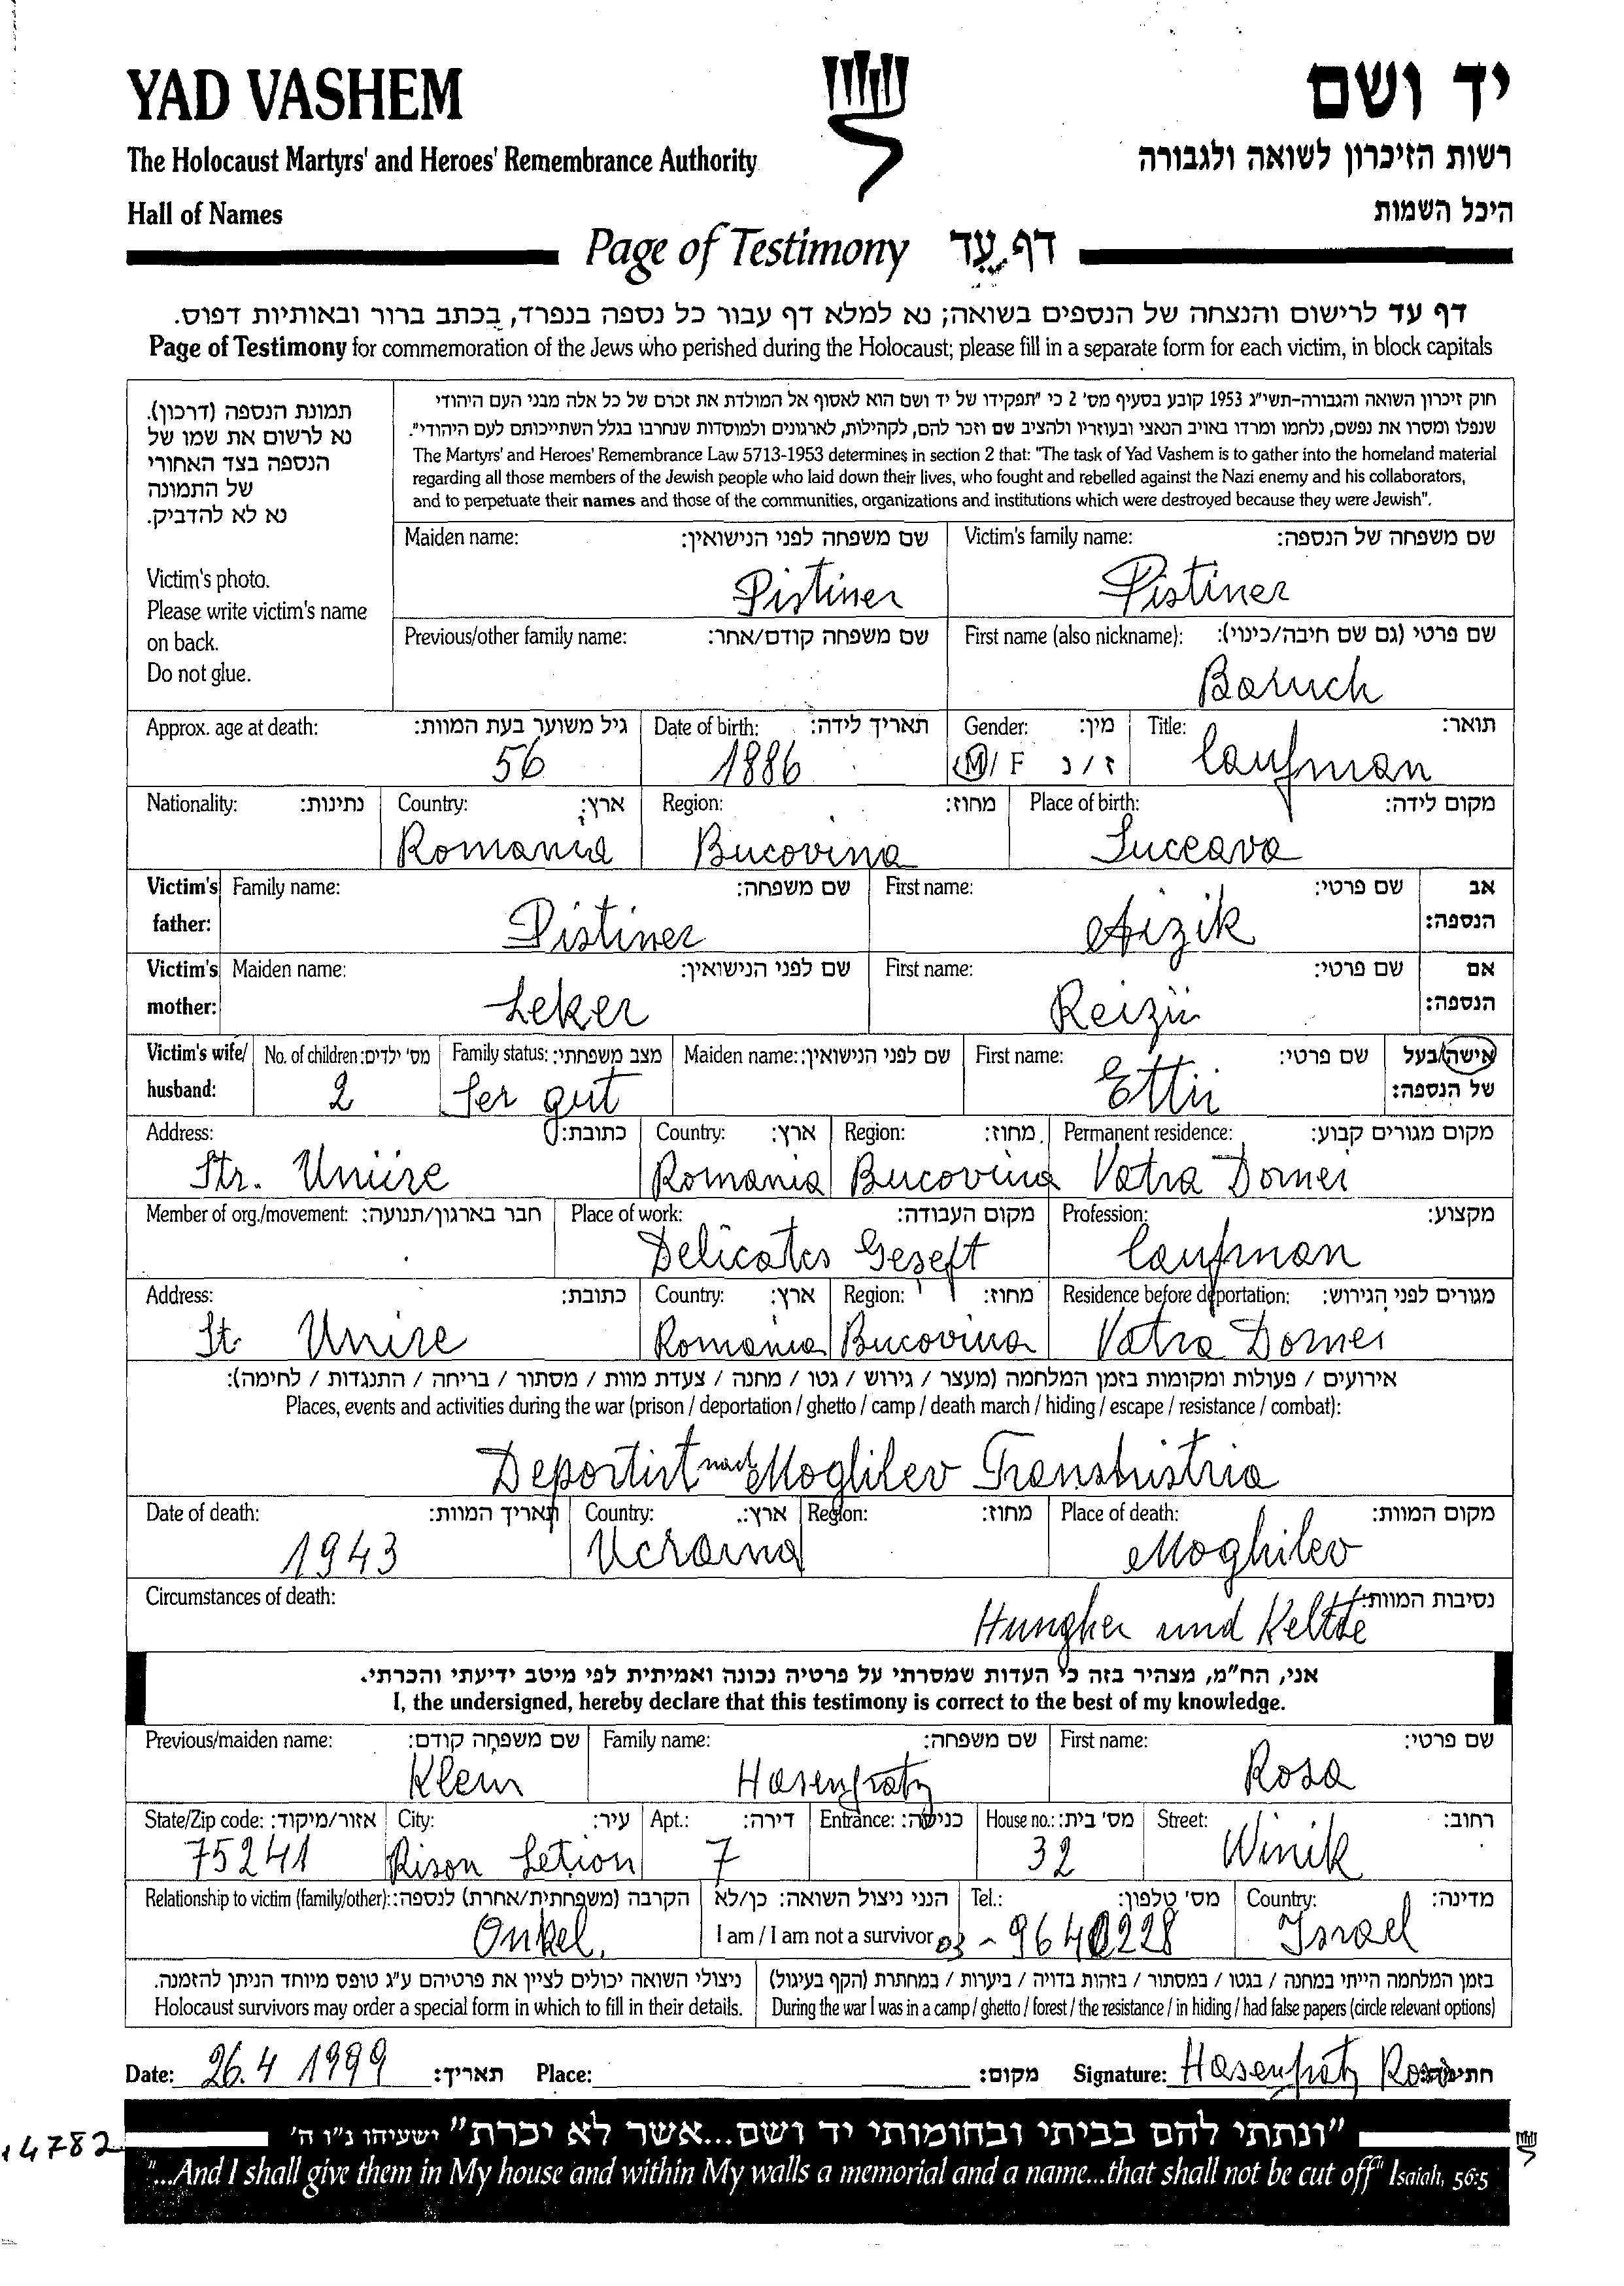 YAD VASHEM
יד ושם
The Holocaust Martyrs' and Heroes' Remembrance Authority
רשות הזיכרון לשואה ולגבורה
Hall of Names
היכל השמות
Page of Testimony דף עֵד
דף עד לרישום והנצחה של הנספים בשואה; נא למלא דף עבור כל נספה בנפרד, בכתב ברור ובאותיות דפוס.
Page of Testimony for commemoration of the Jews who perished during the Holocaust; please fill in a separate form for each victim, in block capitals
תמונת הנספה (דרכון).
נא לרשום את שמו של
הנספה בצד האחורי
של התמונה
נא לא להדביק.
Victim's photo.
Please write victim's name
on back.
Do not glue.
חוק זיכרון השואה והגבורה-תשי"ג 1953 קובע בסעיף מס' 2 כי "תפקידו של יד ושם הוא לאסוף אל המולדת את זכרם של כל אלה מבני העם היהודי
שנפלו ומסרו את נפשם, נלחמו ומרדו באויב הנאצי ובעוזריו ולהציב שם וזכר להם, לקהילות, לארגונים ולמוסדות שנחרבו בגלל השתייכותם לעם היהודי".
The Martyrs' and Heroes' Remembrance Law 5713-1953 determines in section 2 that: "The task of Yad Vashem is to gather into the homeland material
regarding all those members of the Jewish people who laid down their lives, who fought and rebelled against the Nazi enemy and his collaborators,
and to perpetuate their names and those of the communities, organizations and institutions which were destroyed because they were Jewish".
Maiden name: שם משפחה לפני הנישואין: Victim's family name: שם משפחה של הנספה:
Pistiner Pistiner
Previous/other family name: שם משפחה קודם/אחר: First name (also nickname): שם פרטי (גם שם חיבה/כינוי):
Baruch
Approx. age at death: גיל משוער בעת המוות: Date of birth: תאריך לידה: Gender: מין: Title: תואר:
56 1886 M / F ז / נ Caufman
Nationality: נתינות: Country: ארץ: Region: מחוז: Place of birth: מקום לידה:
Romania Bucovina Suceava
Victim's father: Family name: שם משפחה: First name: שם פרטי: אב הנספה:
Pistiner Aizik
Victim's mother: Maiden name: שם לפני הנישואין: First name: שם פרטי: אם הנספה:
Leker Reizii
Victim's wife/ husband: No. of children: מס' ילדים: Family status: מצב משפחתי: Maiden name: שם לפני הנישואין: First name: שם פרטי: אישה/בעל של הנספה:
2 Ser gut Ettii
Address: כתובת: Country: ארץ: Region: מחוז: Permanent residence: מקום מגורים קבוע:
Str. Uniire Romania Bucovina Vatra Dornei
Member of org./movement: חבר בארגון/תנועה: Place of work: מקום העבודה: Profession: מקצוע:
Delicates Geseft Caufman
Address: כתובת: Country: ארץ: Region: מחוז: Residence before deportation: מגורים לפני הגירוש:
St Unire Romania Bucovina Vatra Dornei
אירועים / פעולות ומקומות בזמן המלחמה (מעצר / גירוש / גטו / מחנה / צעדת מוות / מסתור / בריחה / התנגדות / לחימה):
Places, events and activities during the war (prison / deportation / ghetto / camp / death march / hiding / escape / resistance / combat):
Deportirt nach Moglilev Transnistria
Date of death: תאריך המוות: Country: ארץ: Region: מחוז: Place of death: מקום המוות:
1943 Ucraina Moghilev
Circumstances of death: נסיבות המוות:
Hungher und Keltte
אני, הח"מ, מצהיר בזה כי העדות שמסרתי על פרטיה נכונה ואמיתית לפי מיטב ידיעתי והכרתי.
I, the undersigned, hereby declare that this testimony is correct to the best of my knowledge.
Previous/maiden name: שם משפחה קודם: Family name: שם משפחה: First name: שם פרטי:
Klein Hasenfratz Rosa
State/Zip code: אזור/מיקוד: City: עיר: Apt.: דירה: Entrance: כניסה: House no.: מס' בית: Street: רחוב:
75241 Rison Letion 7 32 Winik
Relationship to victim (family/other): הקרבה (משפחתית/אחרת) לנספה: הנני ניצול השואה: כן/לא Tel.: מס' טלפון: Country: מדינה:
Onkel. I am / I am not a survivor 03 - 9640228 Israel
ניצולי השואה יכולים לציין את פרטיהם ע"ג טופס מיוחד הניתן להזמנה.
Holocaust survivors may order a special form in which to fill in their details.
בזמן המלחמה הייתי במחנה / בגטו / במסתור / בזהות בדויה / ביערות / במחתרת (הקף בעיגול)
During the war I was in a camp / ghetto / forest / the resistance / in hiding / had false papers (circle relevant options)
Date: 26.4 1999 תאריך: Place: מקום: Signature: Hasenfratz Rosa חתימה:
14782
"ונתתי להם בביתי ובחומותי יד ושם...אשר לא יכרת" ישעיהו נ"ו ה'
"...And I shall give them in My house and within My walls a memorial and a name...that shall not be cut off" Isaiah, 56:5